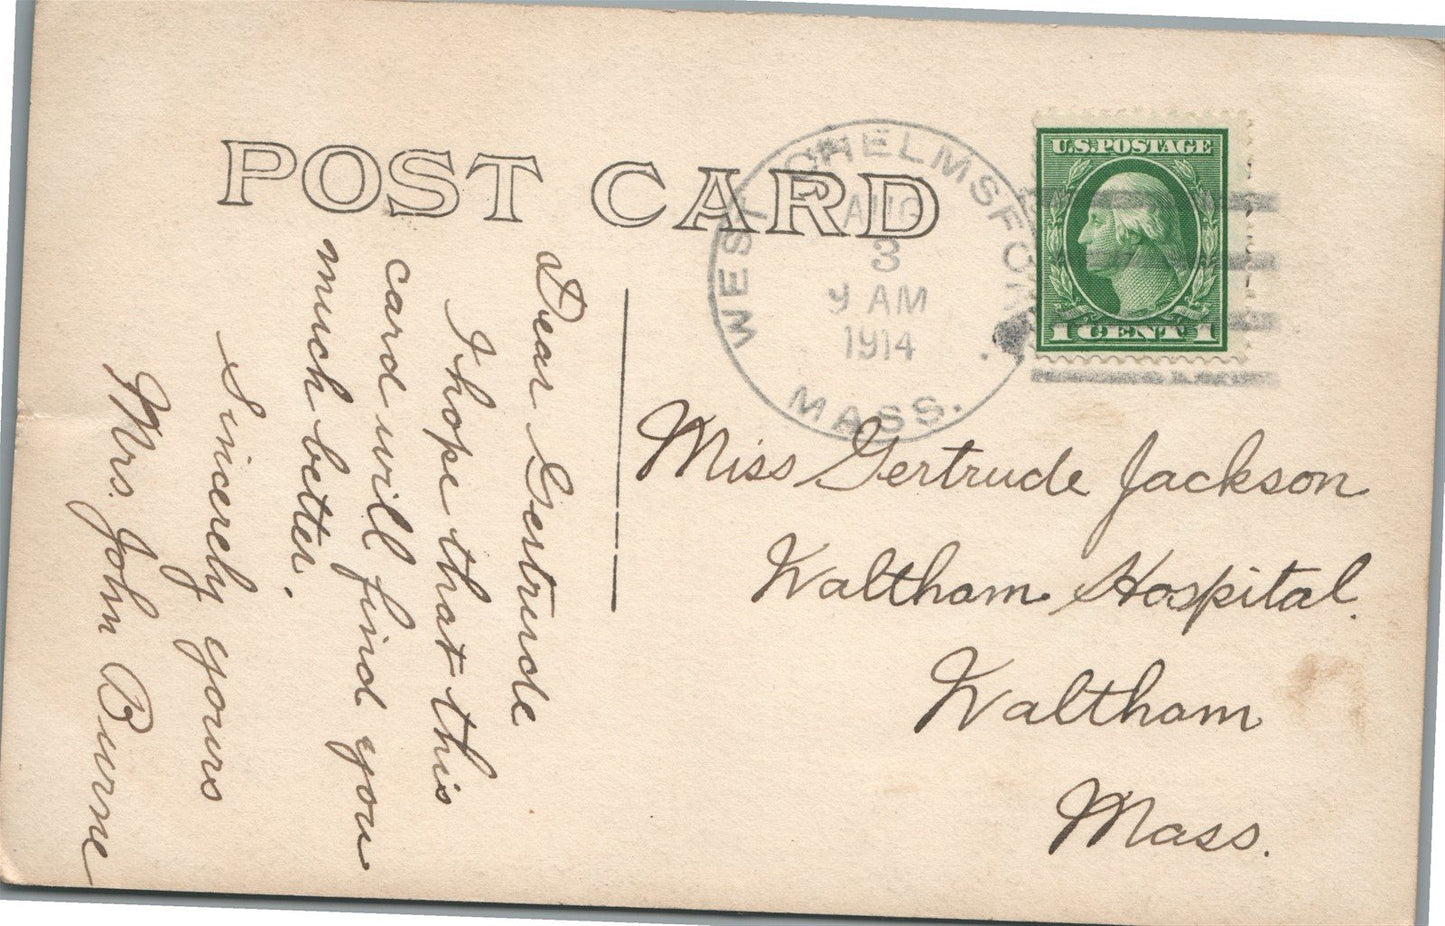 POST CARD
WEST CHELMSFORD
AUG
3
9 AM
1914
MASS.
U.S. POSTAGE
1 CENT 1
Dear Gertrude
I hope that this
card will find you
much better.
Sincerely yours
Mrs. John Burne
Miss Gertrude Jackson
Waltham Hospital.
Waltham
Mass.